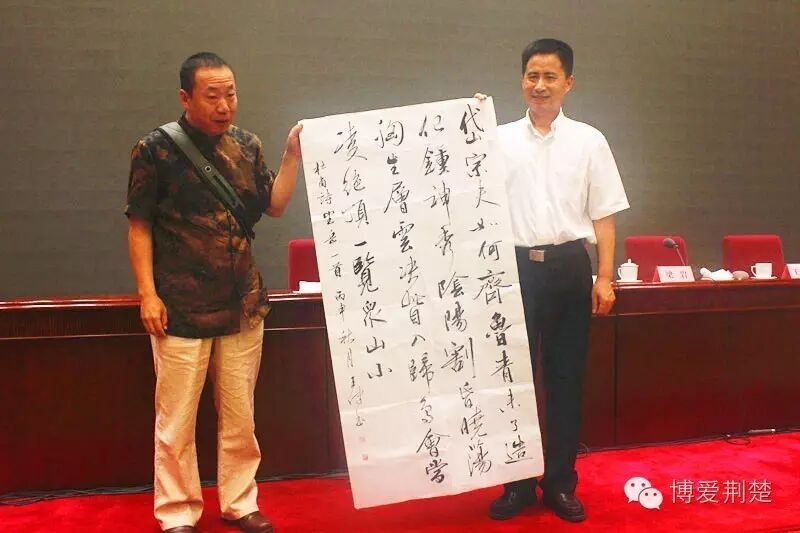 岱宗夫如何齊魯青未了造
化鍾神秀陰陽割昏曉蕩
胸生層雲决眥入歸鳥會當
凌绝顶一覽眾山小
杜甫詩望岳一首 丙申秋月王
梁岩
博爱荆楚